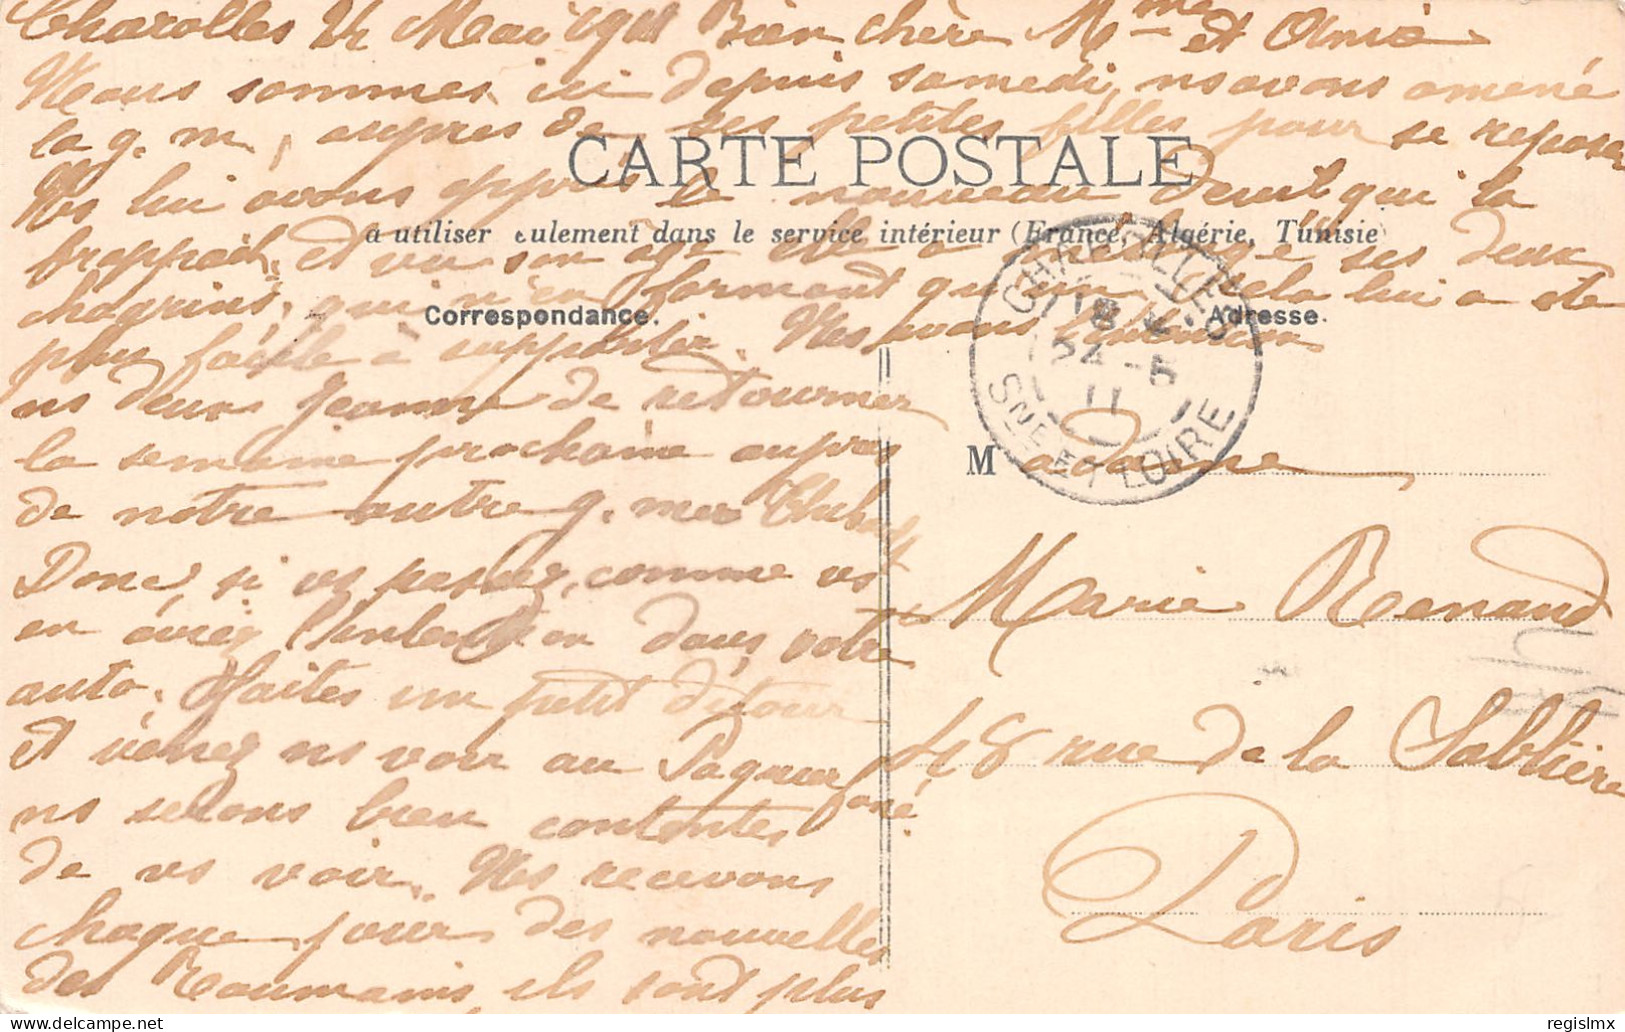 Charolles 24 Mai 1911 Bien chère Mme et Amie
Nous sommes ici depuis samedi, ns avons amené
la g. m, auprès de ses petites filles pour se reposer
CARTE POSTALE
Ns lui avons appris le nouveau deuil qui la
à utiliser seulement dans le service intérieur (France, Algérie, Tunisie)
frappait, et vu son âge elle a mélangé ses deux
chagrins, qui n'en forment qu'un cela lui a été
Correspondance.
Adresse.
plus facile à supporter. Ns avons l'intention
ns deux Jeanne de retourner
la semaine prochaine auprès
de notre autre g. mère
Donc, si vs passez, comme vs
en aviez l'intention dans votre
auto. Faites un petit détour
et venez ns voir au
ns serons bien contentes
de vs voir. Ns recevons
chaque jour des nouvelles
des Roumains, ils sont plus
CHAROLLES
18
24-5
11
SNE ET LOIRE
Madame
Marie Renand
48 rue de la Sablière
Paris
regislmx